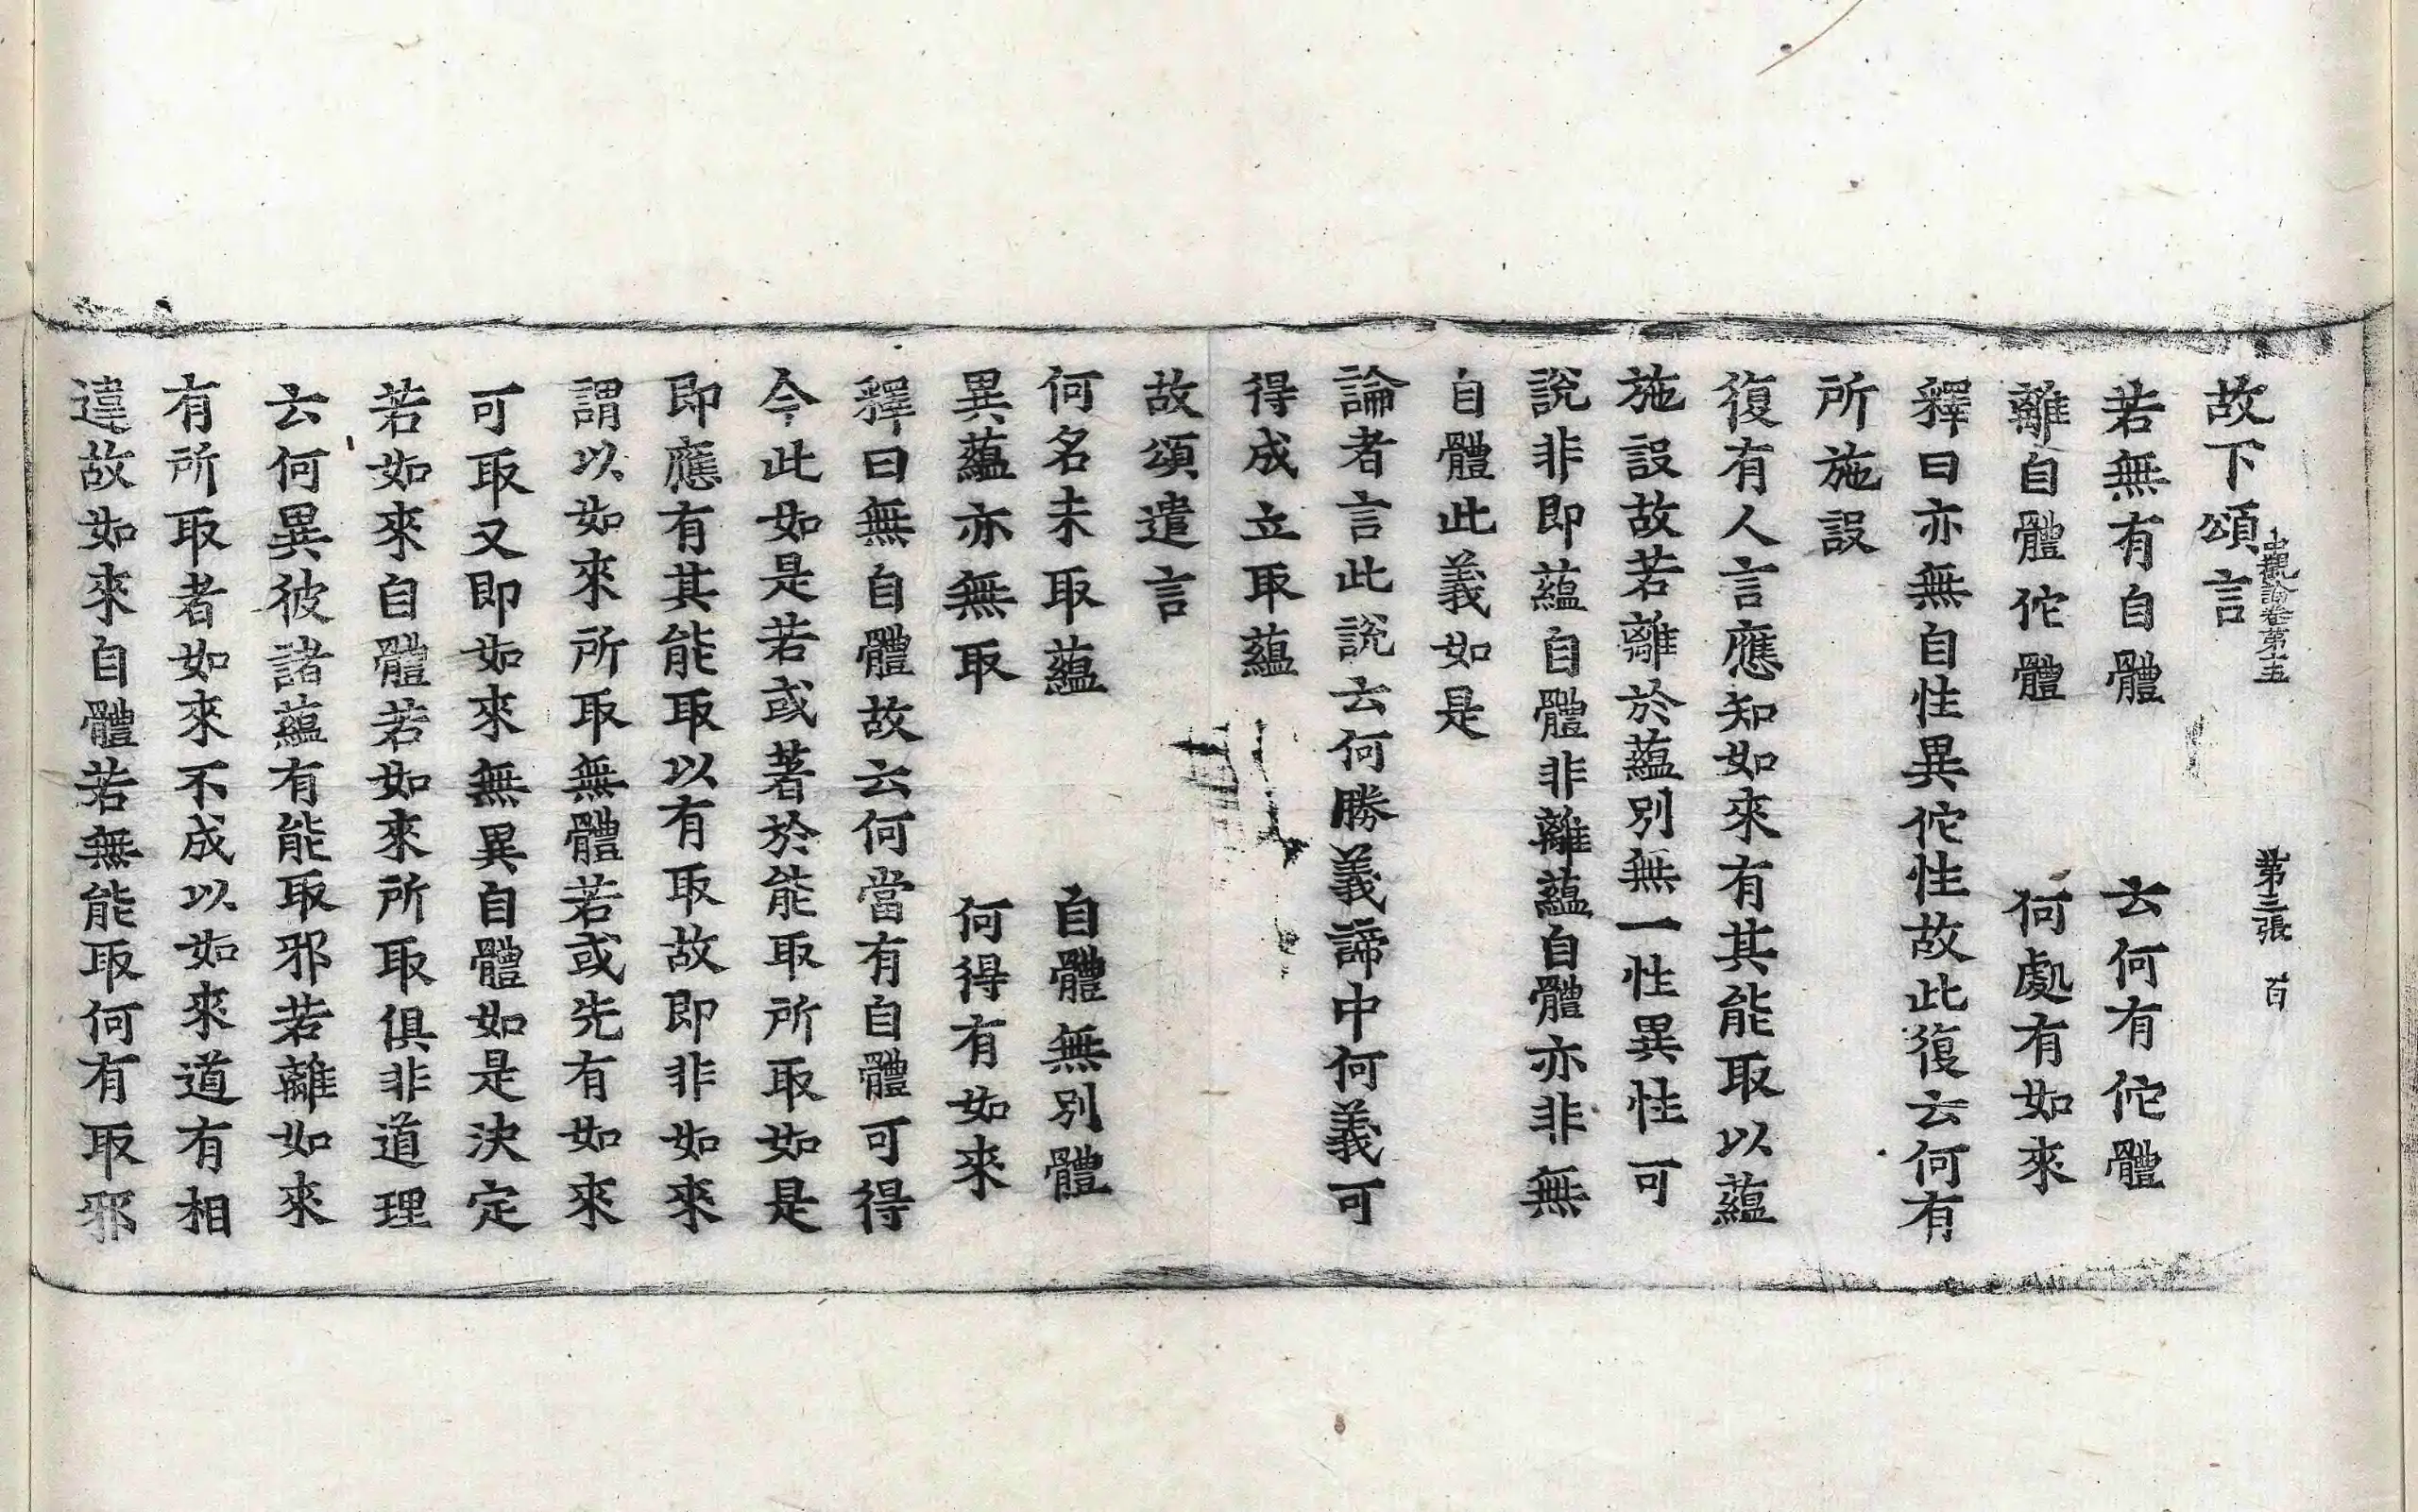 中觀論卷第十五　第三張　百
故下頌言
若無有自體　云何有佗體
離自體佗體　何處有如來
釋曰亦無自性異佗性故此復云何有
所施設
復有人言應知如來有其能取以蘊
施設故若離於蘊別無一性異性可
說非即蘊自體非離蘊自體亦非無
自體此義如是
論者言此說云何勝義諦中何義可
得成立取蘊
故頌遣言
何名未取蘊　自體無別體
異蘊亦無取　何得有如來
釋曰無自體故云何當有自體可得
今此如是若或著於能取所取如是
即應有其能取以有取故即非如來
謂以如來所取無體若或先有如來
可取又即如來無異自體如是決定
若如來自體若如來所取俱非道理
云何異彼諸蘊有能取邪若離如來
有所取者如來不成以如來道有相
違故如來自體若無能取何有取邪